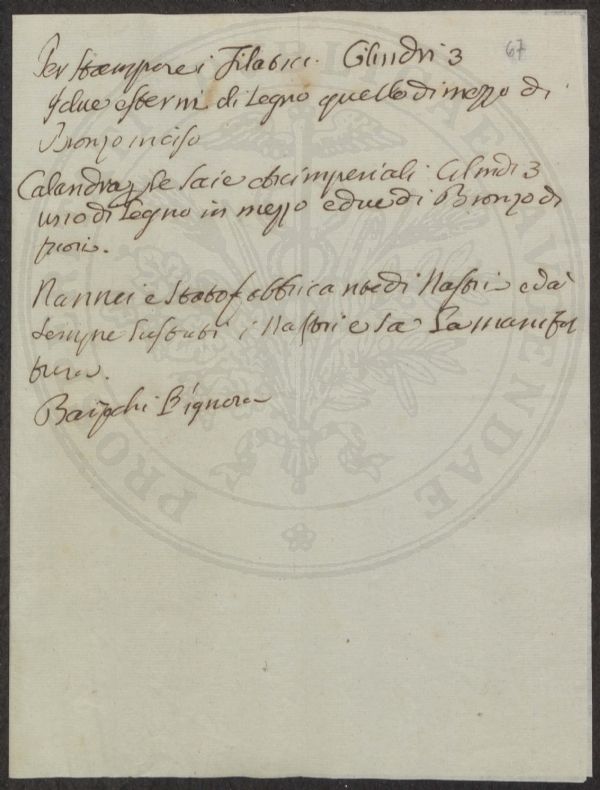 Per stampare i Filatici. Cilindri 3
67
i due esterni di Legno quello di mezzo di
Bronzo inciso
Calandra p le Saie ed imperiali Cilindri 3
uno di Legno in mezzo e due di Bronzo di
fuori.
Nannei è stato fabbricante di Nastri e dà
sempre lustrati i Nastri e sa la manifat
tura.
Bignora
PRO
AVENDAE